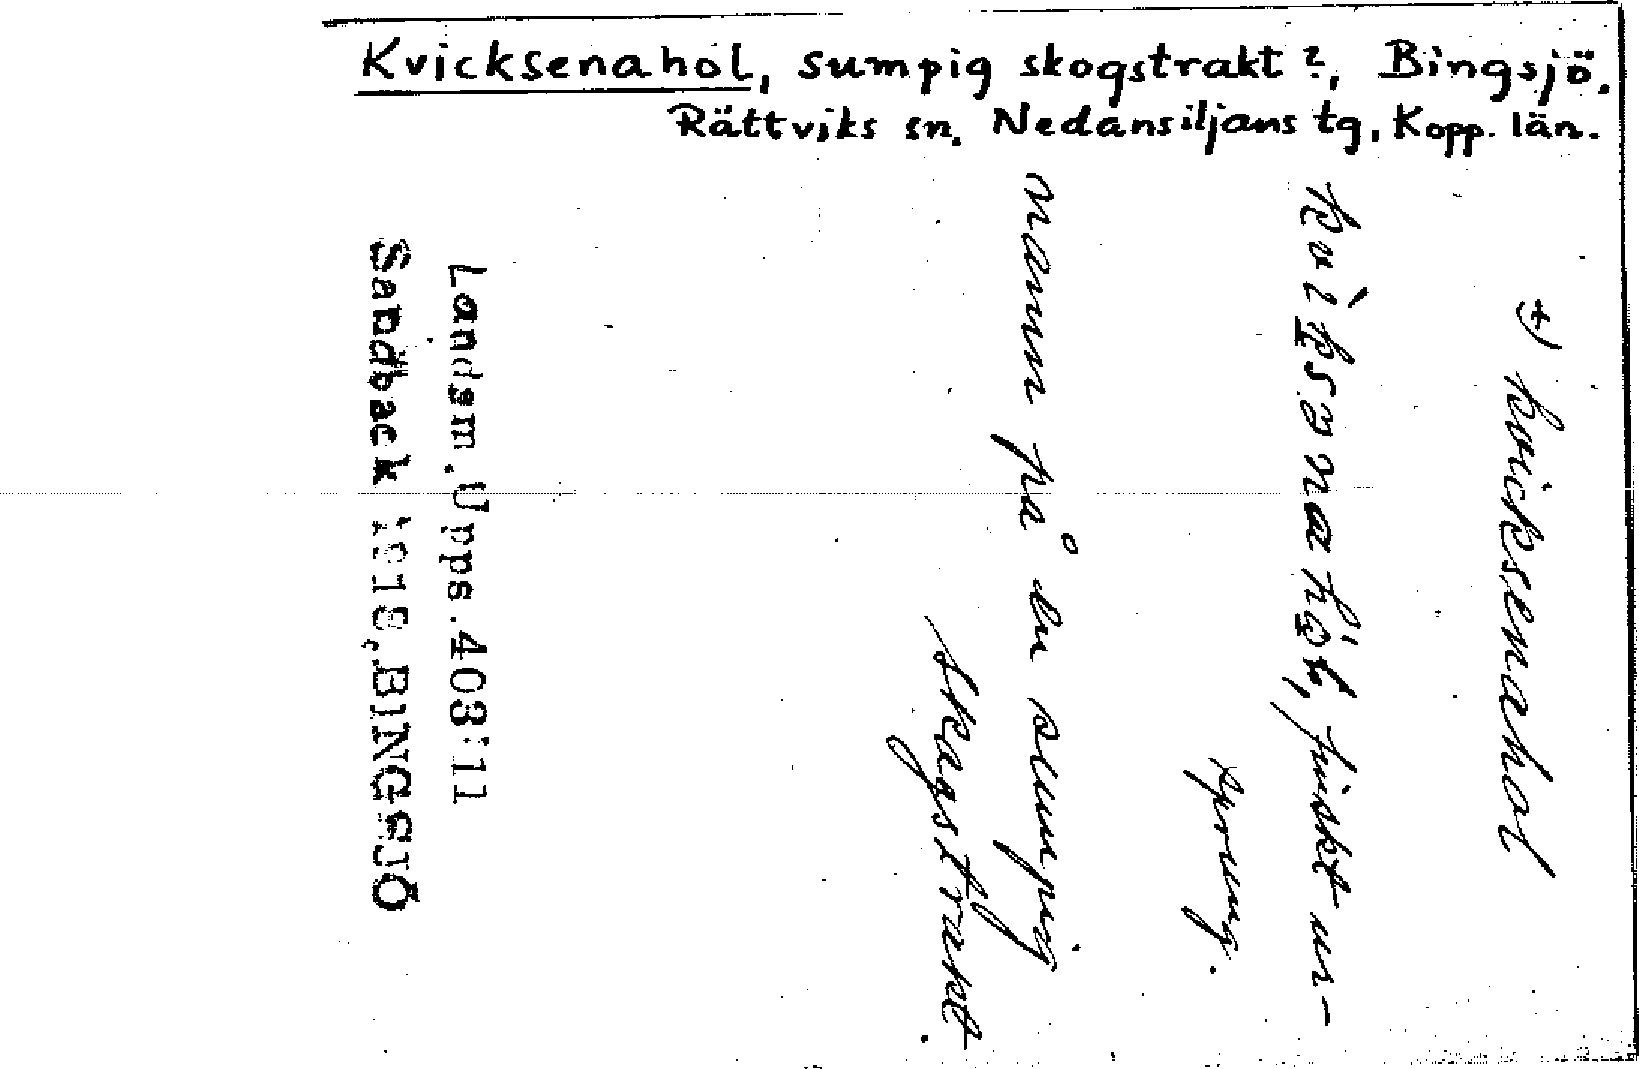 Kvicksenahol, sumpig skogstrakt?, Bingsjö.
Rättviks sn. Nedansiljans tg, Kopp. län.
+) kvicksenahol
finskt ur-
sprung.
namn på en sumpig
skogstrakt.
Landsm. Upps. 403:11
Sandbäck 1918, BINGSJÖ